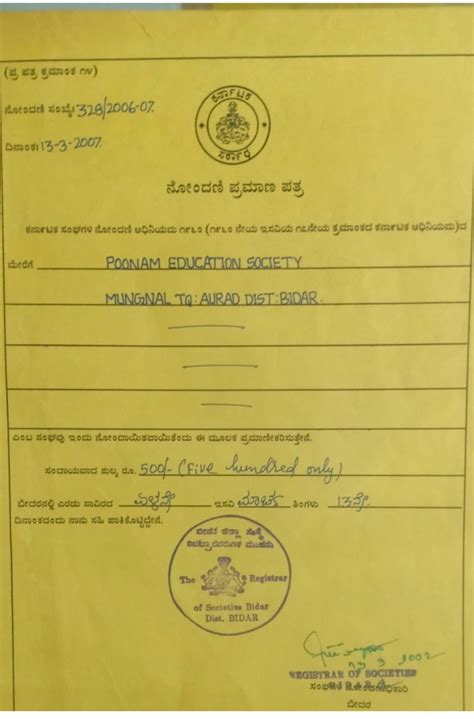 (ಪ್ರ ಪತ್ರ ಕ್ರಮಾಂಕ ೧೪)
ನೋಂದಣಿ ಸಂಖ್ಯೆ: 328/2006-07.
ದಿನಾಂಕ: 13-3-2007.
ಕರ್ನಾಟಕ
ಸರ್ಕಾರ
ನೋಂದಣಿ ಪ್ರಮಾಣ ಪತ್ರ
ಕರ್ನಾಟಕ ಸಂಘಗಳ ನೋಂದಣಿ ಅಧಿನಿಯಮ ೧೯೬೦ (೧೯೬೦ ನೇಯ ಇಸವಿಯ ೧೭ನೇಯ ಕ್ರಮಾಂಕದ ಕರ್ನಾಟಕ ಅಧಿನಿಯಮ)ದ
ಮೇರೆಗೆ POONAM EDUCATION SOCIETY
MUNGNAL TQ: AURAD DIST: BIDAR.
ಎಂಬ ಸಂಘವು ಇಂದು ನೋಂದಾಯಿತವಾಯಿತೆಂದು ಈ ಮೂಲಕ ಪ್ರಮಾಣೀಕರಿಸುತ್ತೇನೆ.
ಸಂದಾಯವಾದ ಶುಲ್ಕ ರೂ. 500/- (Five hundred only)
ಬೀದರನಲ್ಲಿ ಎರಡು ಸಾವಿರದ ಏಳನೇ ಇಸವಿ ಮಾರ್ಚ ತಿಂಗಳು 13ನೇ
ದಿನಾಂಕದಂದು ನಾನು ಸಹಿ ಹಾಕಿಕೊಟ್ಟಿದ್ದೇನೆ.
ಬೀದರ ಜಿಲ್ಲಾ
The Registrar
of Societies Bidar
Dist. BIDAR
REGISTRAR OF SOCIETIES
BIDAR
ಸಂಘಗಳ ನೋಂದಣಾಧಿಕಾರಿ
ಬೀದರ